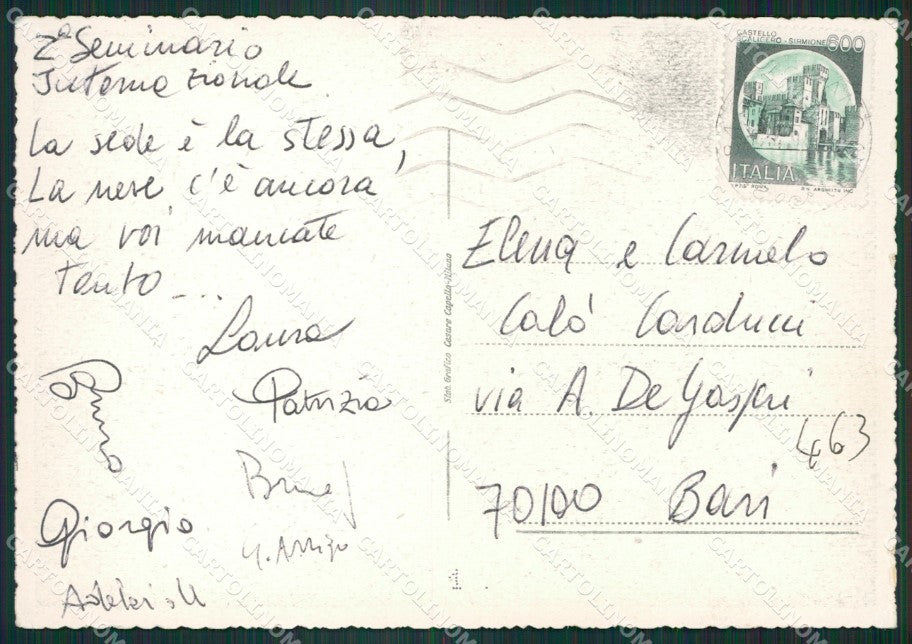 2º Seminario
Internazionale
La sede è la stessa,
La neve c'è ancora
ma voi mancate
tanto ...
Laura
Patrizia
Bruno
Giorgio
CASTELLO
SCALIGERO - SIRMIONE 600
ITALIA
Elena e Carmelo
Calò Carducci
via A. De Gasperi
463
70100 Bari
Stab. Grafico Cesare Capello - Milano
CARTOLINOMANIA